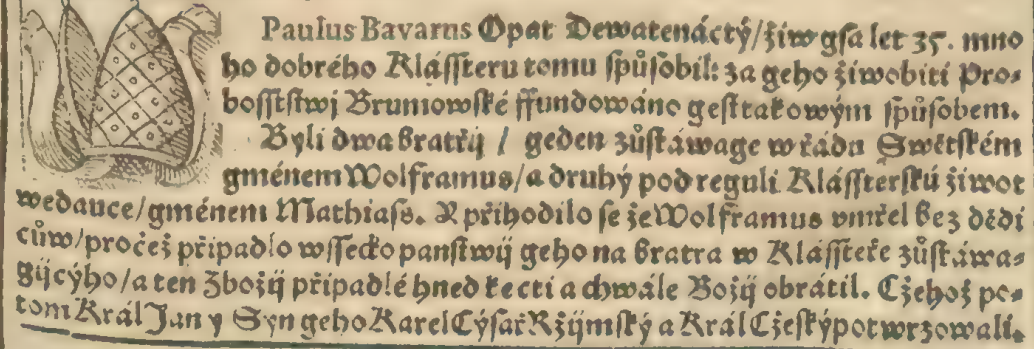 Paulus Bavarns Opat Dewatenáctý/žiw gsa let 35. mno
ho dobrého Klássteru tomu spůsobil: za geho žiwobití Pro⸗
bosststwj Brumowské ffundowáno gest takowým spůsobem.
Byli dwa bratřij / geden zůstáwage w řádu Swětském
gménem Wolframus/a druhý pod reguli Klássterskú žiwot
wedauce/gménem Mathiass. Y přihodilo se že Wolframus vmřel bez dědi
cůw/pročež připadlo wssecko panstwij geho na bratra w Klássteře zůstáwa⸗
gijcýho/a ten Zbožij připadlé hned ke cti a chwále Božij obrátil. Cžehož po⸗
tom Král Jan y Syn geho Karel Cýsař Ržijmský a Král Cžeský potwrzowali.